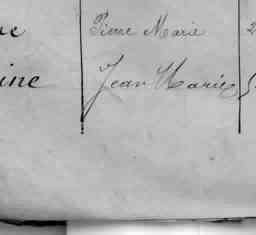 Pierre Marie 2
ine Jean Marie